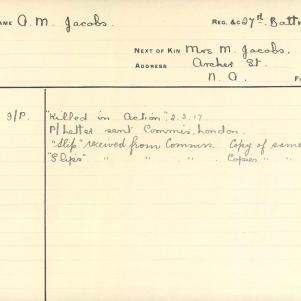 NAME A. M. Jacobs. REG. &c 27th Battn
NEXT OF KIN Mrs M. Jacobs.
ADDRESS Archer St.
N. A.
I/P. "Killed in Action". 2.3.17.
P/Letter sent Commis. London.
"Slip" received from Commis. Copy of same
"Slips" " " " Copies " "